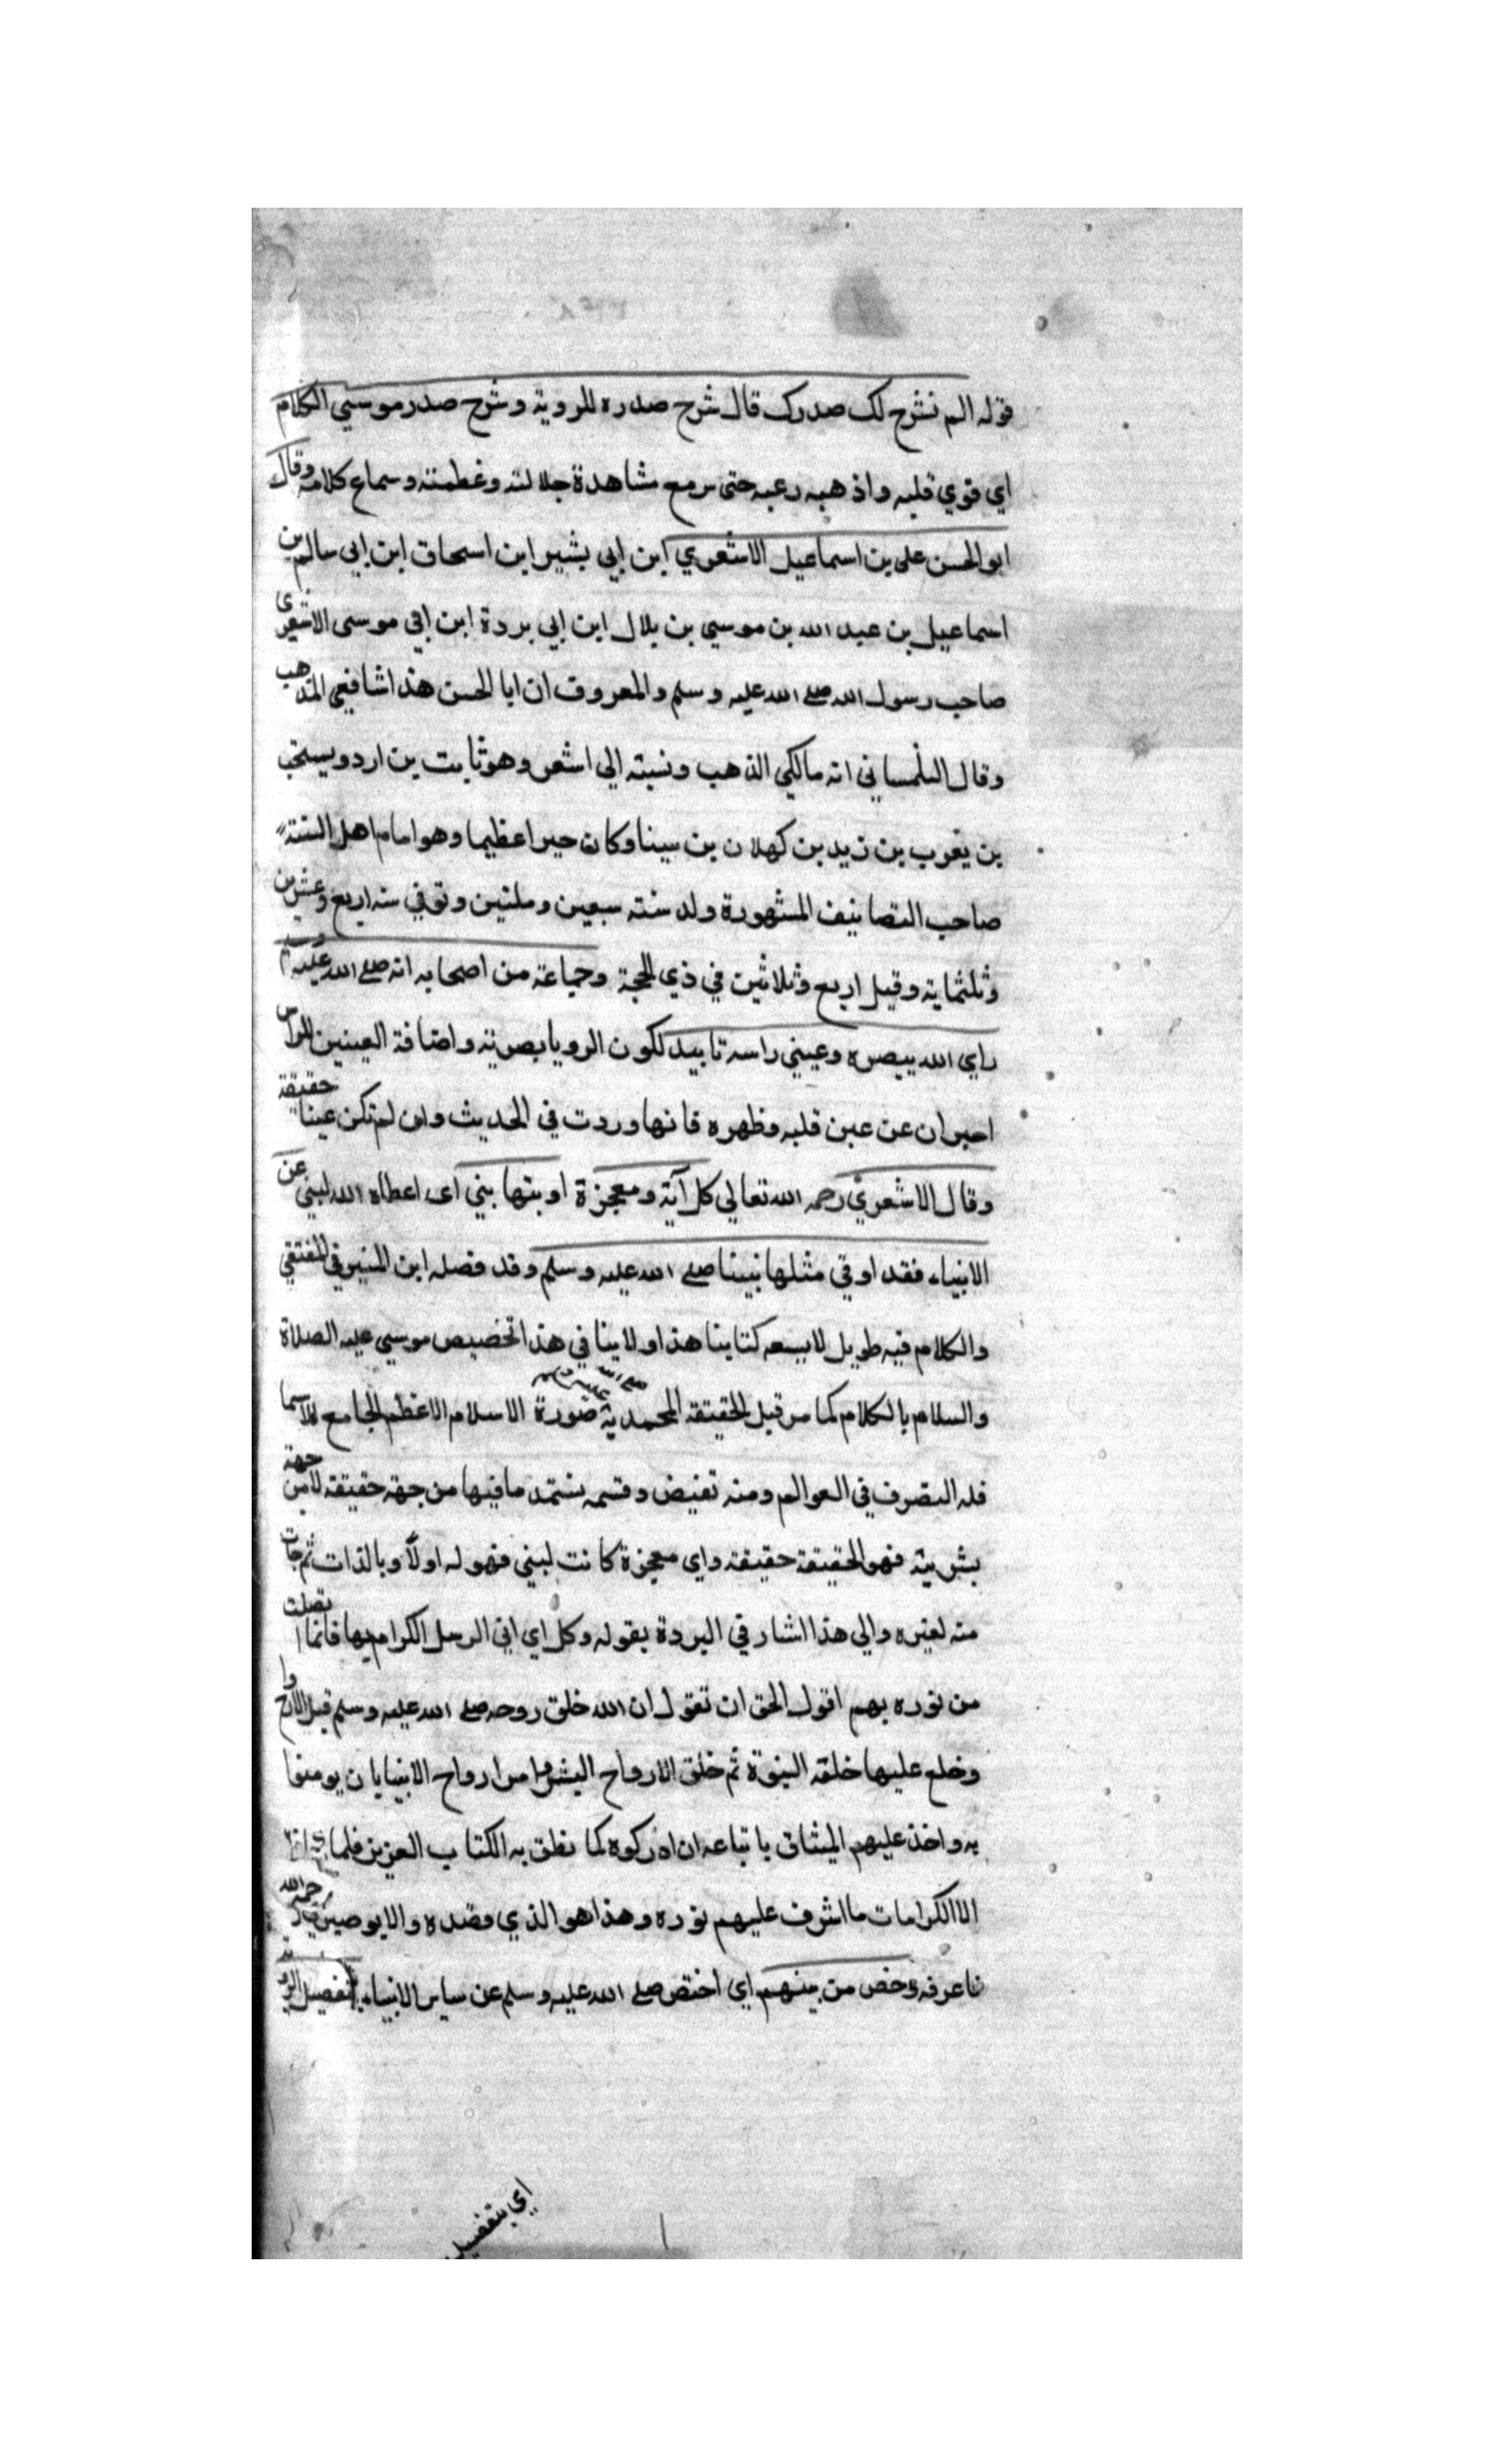 قوله الم نشرح لك صدرك قال شرح صدره للروية وشرح صدر موسي الكلام
اي قوي قلبه واذهبه رعبه حتى مع مشاهدة جلالته وغطمته وسماع كلامه وقال
ابو الحسن على بن اسماعيل الاشعري ابن ابي بشير ابن اسحاق ابن ابي سالم بن
اسماعيل بن عبد الله بن موسي بن بلال ابن ابي بردة ابن ابي موسى الاشعري
صاحب رسول الله صلى الله عليه وسلم والمعروف ان ابا الحسن هذا شافعي المذهب
وقال التلمساني انه مالكي الذهب ونسبته الي اشعر وهو ثابت بن اردو يستحب
بن يعرب بن زيد بن كهلان بن سينا وكان حبرا عظيما وهو امام اهل السنة
صاحب التصانيف المشهورة ولد سنته سبعين ومئتين وتوفي سنه اربع وعشرين
وثلثماية وقيل اربع وثلاثين في ذي الحجة وجماعة من اصحابه انه صلى الله عليه وسلم
راي الله ببصره وعيني راسه تاييد لكون الرويا بصريته واضافة العينين للراس
احبران عن عين قلبه وظهره فانها وردت في الحديث وان لم تكن عينا حقيقة
وقال الاشعري رحمه الله تعالي كل آية ومعجزة اوتيها بني اى اعطاه الله لبني عن
الانبياء فقد اوتي مثلها نبينا صلى الله عليه وسلم وقد فضله ابن المنير في المقتفي
والكلام فيه طويل لا يسعه كتابنا هذا ولا ينا في هذا تخصيص موسي عليه الصلاة
والسلام بالكلام كما مر قيل الحقيقة المحمدية صلى الله عليه وسلم صورة الاسلام الاعظم الجامع للاسما
فله التصرف في العوالم ومنه تفيض وقسمه يستمد ما فيها من جهة حقيقة لا من جهة
بشريته فهو الحقيقة حقيقة واي معجزة كانت لبني فهو له اولًا وبالذات ثم جات
منه لغيره والي هذا اشار في البردة بقوله وكل اي اتي الرسل الكرام بها فانما اتصلت
من نوره بهم اقول الحق ان تقول ان الله خلق روحه صلى الله عليه وسلم قبل الارواح
وخلع عليها خلقه النبوة ثم خلق الارواح البشر وامر ارواح الانبيا بان يومنوا
به واخذ عليهم الميثاق باتباعه ان ادركوه كما نطق به الكتاب العزيز فلما
الا الكرامات ما اشرف عليهم نوره وهذا هو الذي وقصده والابوصيري رحمه الله
فاعرفه وخص من بينهم اي اختص صلى الله عليه وسلم عن ساير الانبياء بتفصيل الروية
اي بتفضيل